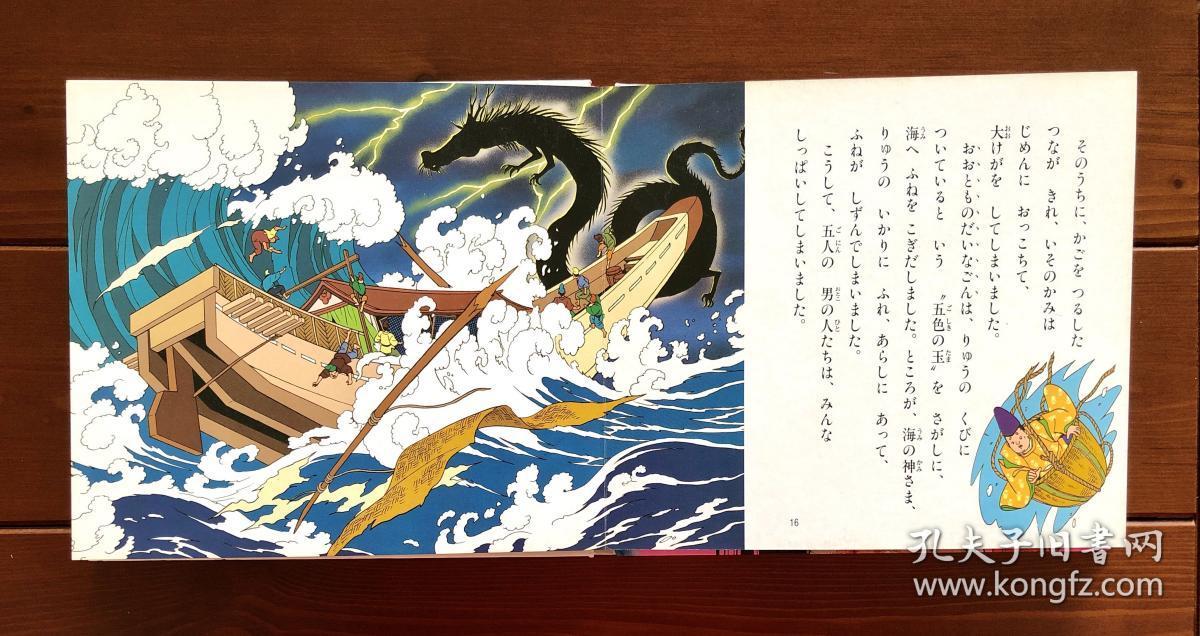 そのうちに、かごを つるした
つなが きれ、いそのかみは
じめんに おっこちて、
大けがを してしまいました。
おおとものだいなごんは、りゅうの くびに
ついていると いう “五色の玉”を さがしに、
海へ ふねを こぎだしました。ところが、海の神さま、
りゅうの いかりに ふれ、あらしに あって、
ふねが しずんでしまいました。
こうして、五人の 男の人たちは、みんな
しっぱいしてしまいました。
16
孔夫子旧書网
www.kongfz.com